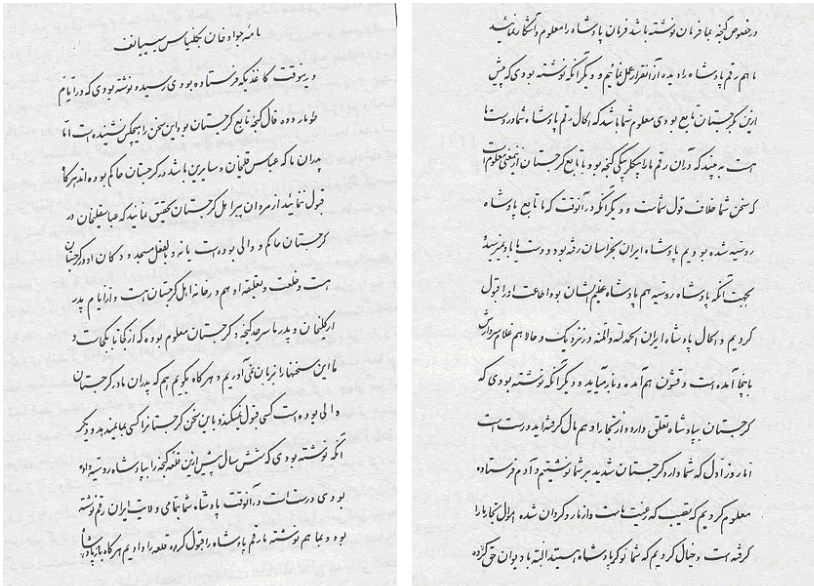 نامه جواد خان بکنیاس سیسیانف
در اینوقت کاغذیکه فرستاده بودی رسیده و نوشته بودی که در ایام
طومار دده فال گنجه تابع گرجستان بود این سخن را هیچکس نشنیده است اما
پدران ما که عباسقلیخان و سایرین باشد در گرجستان حاکم بوده اند هرگاه
قبول ننمایند از مردان پیر اهل گرجستان تحقیق نمایند که عباسقلیخان در
گرجستان حاکم و والی بوده است یا نه و بالفعل مسجد و دکان او در گرجستان
هست و خلعت و تعلیقه او هم در خانه اهل گرجستان هست و از ایام پدر
ارکلیخان و پدر ما سرحد گنجه و گرجستان معلوم بوده که از کجا تا بکجاست و
ما این سخنها را بزبان نمی آوریم و هرگاه بگویم هم که پدران ما در گرجستان
والی بوده است کسی قبول نمیکند و باین سخن گرجستانرا کسی بما نمیدهد و دیگر
آنکه نوشته بودی که شش سال پیش ازین قلعه گنجه را بپادشاه روسیه داده
بودی درست است در آنوقت پادشاه شما بتمامی ولایت ایران رقم نوشته
بود و بما هم نوشته ما رقم پادشاه را قبول کرده قلعه را دادیم هرگاه باز پادشاه
در خصوص گنجه بما فرمان نوشته باشد فرمان پادشاه را معلوم و آشکار نمائید
ما هم رقم پادشاه را دیده از آنقرار عمل نمائیم و دیگر آنکه نوشته بودی که پیش
ازین گرجستان تابع بودی معلوم شما باشد که الحال رقم پادشاه شما در دست ما
هست به بینید که در آن رقم ما را بیگلربیگی گنجه بود یا تابع گرجستان ازین معنی معلوم است
که سخن شما خلاف قول شماست و دیگر آنکه در آنوقت که ما تابع پادشاه
روسیه شده بودیم پادشاه ایران بخراسان رفته بود و دست ما باو نمیرسید
بجهت آنکه پادشاه روسیه هم پادشاه عظیم الشان بود اطاعت او را قبول
کردیم و الحال پادشاه ایران الحمد لله والمنه در نزدیک و حالا هم غلام سردارش
باینجا آمده است و قشون هم آمده و باز میآید و دیگر آنکه نوشته بودی که
گرجستان بپادشاه تعلق دارد و از تجار او هم مال گرفته اید درست است
اما روز اول که شما وارد گرجستان شدید بر شما نوشتیم و آدم فرستاده
معلوم کردیم که نصیب که رعیت ماست و از ما رو گردان شده اموال تجار ما را
گرفته است و خیال کردیم که شما نوکر پادشاه هستید البته با دیوان حق کرده